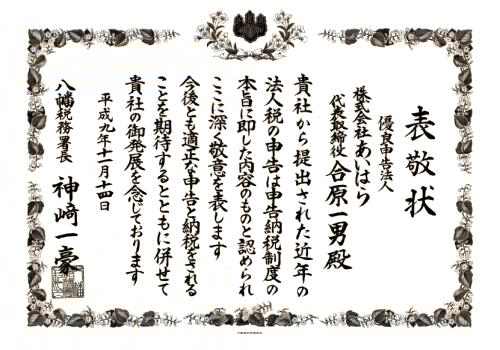 表敬状
優良申告法人
株式会社あいはら
代表取締役 合原一男殿
貴社から提出された近年の
法人税の申告は申告納税制度の
本旨に即した内容のものと認められ
ここに深く敬意を表します
今後とも適正な申告と納税をされる
ことを期待するとともに併せて
貴社の御発展を念じております
平成九年十一月十四日
八幡税務署長 神﨑一豪